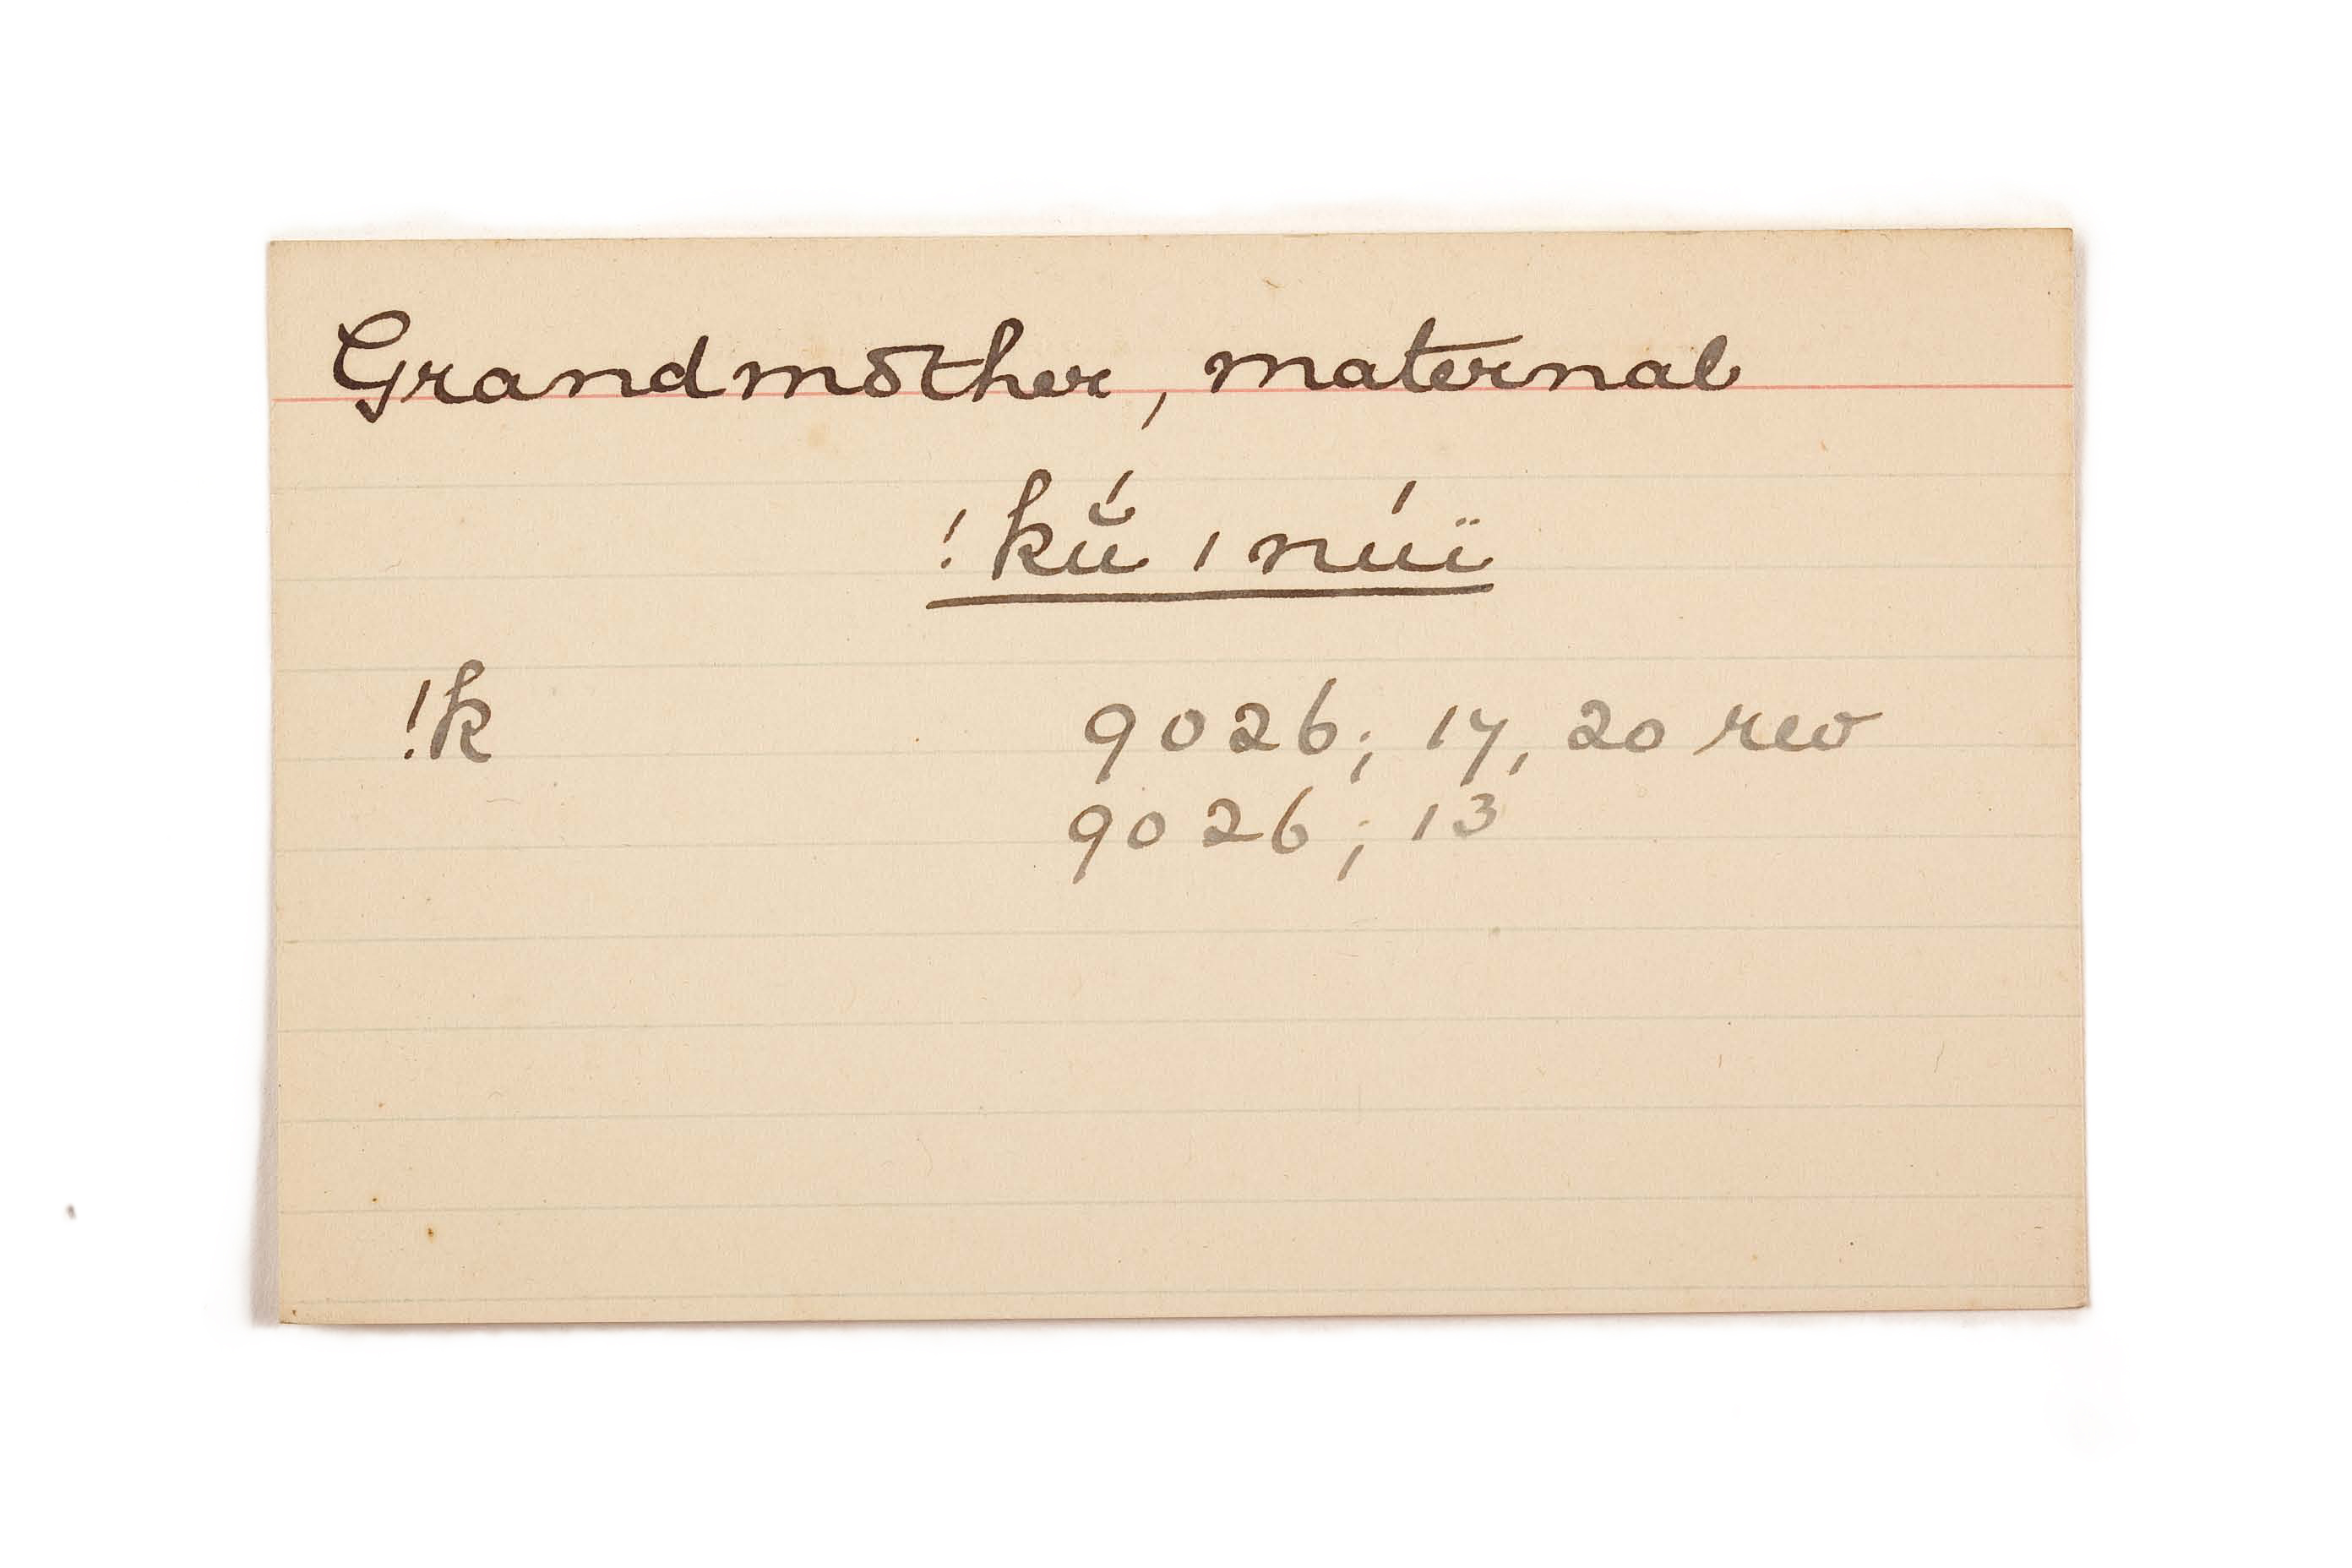 Grandmother, maternal
!kŭ́ ǀnúï
!k 9026; 17, 20 rev
9026; 13